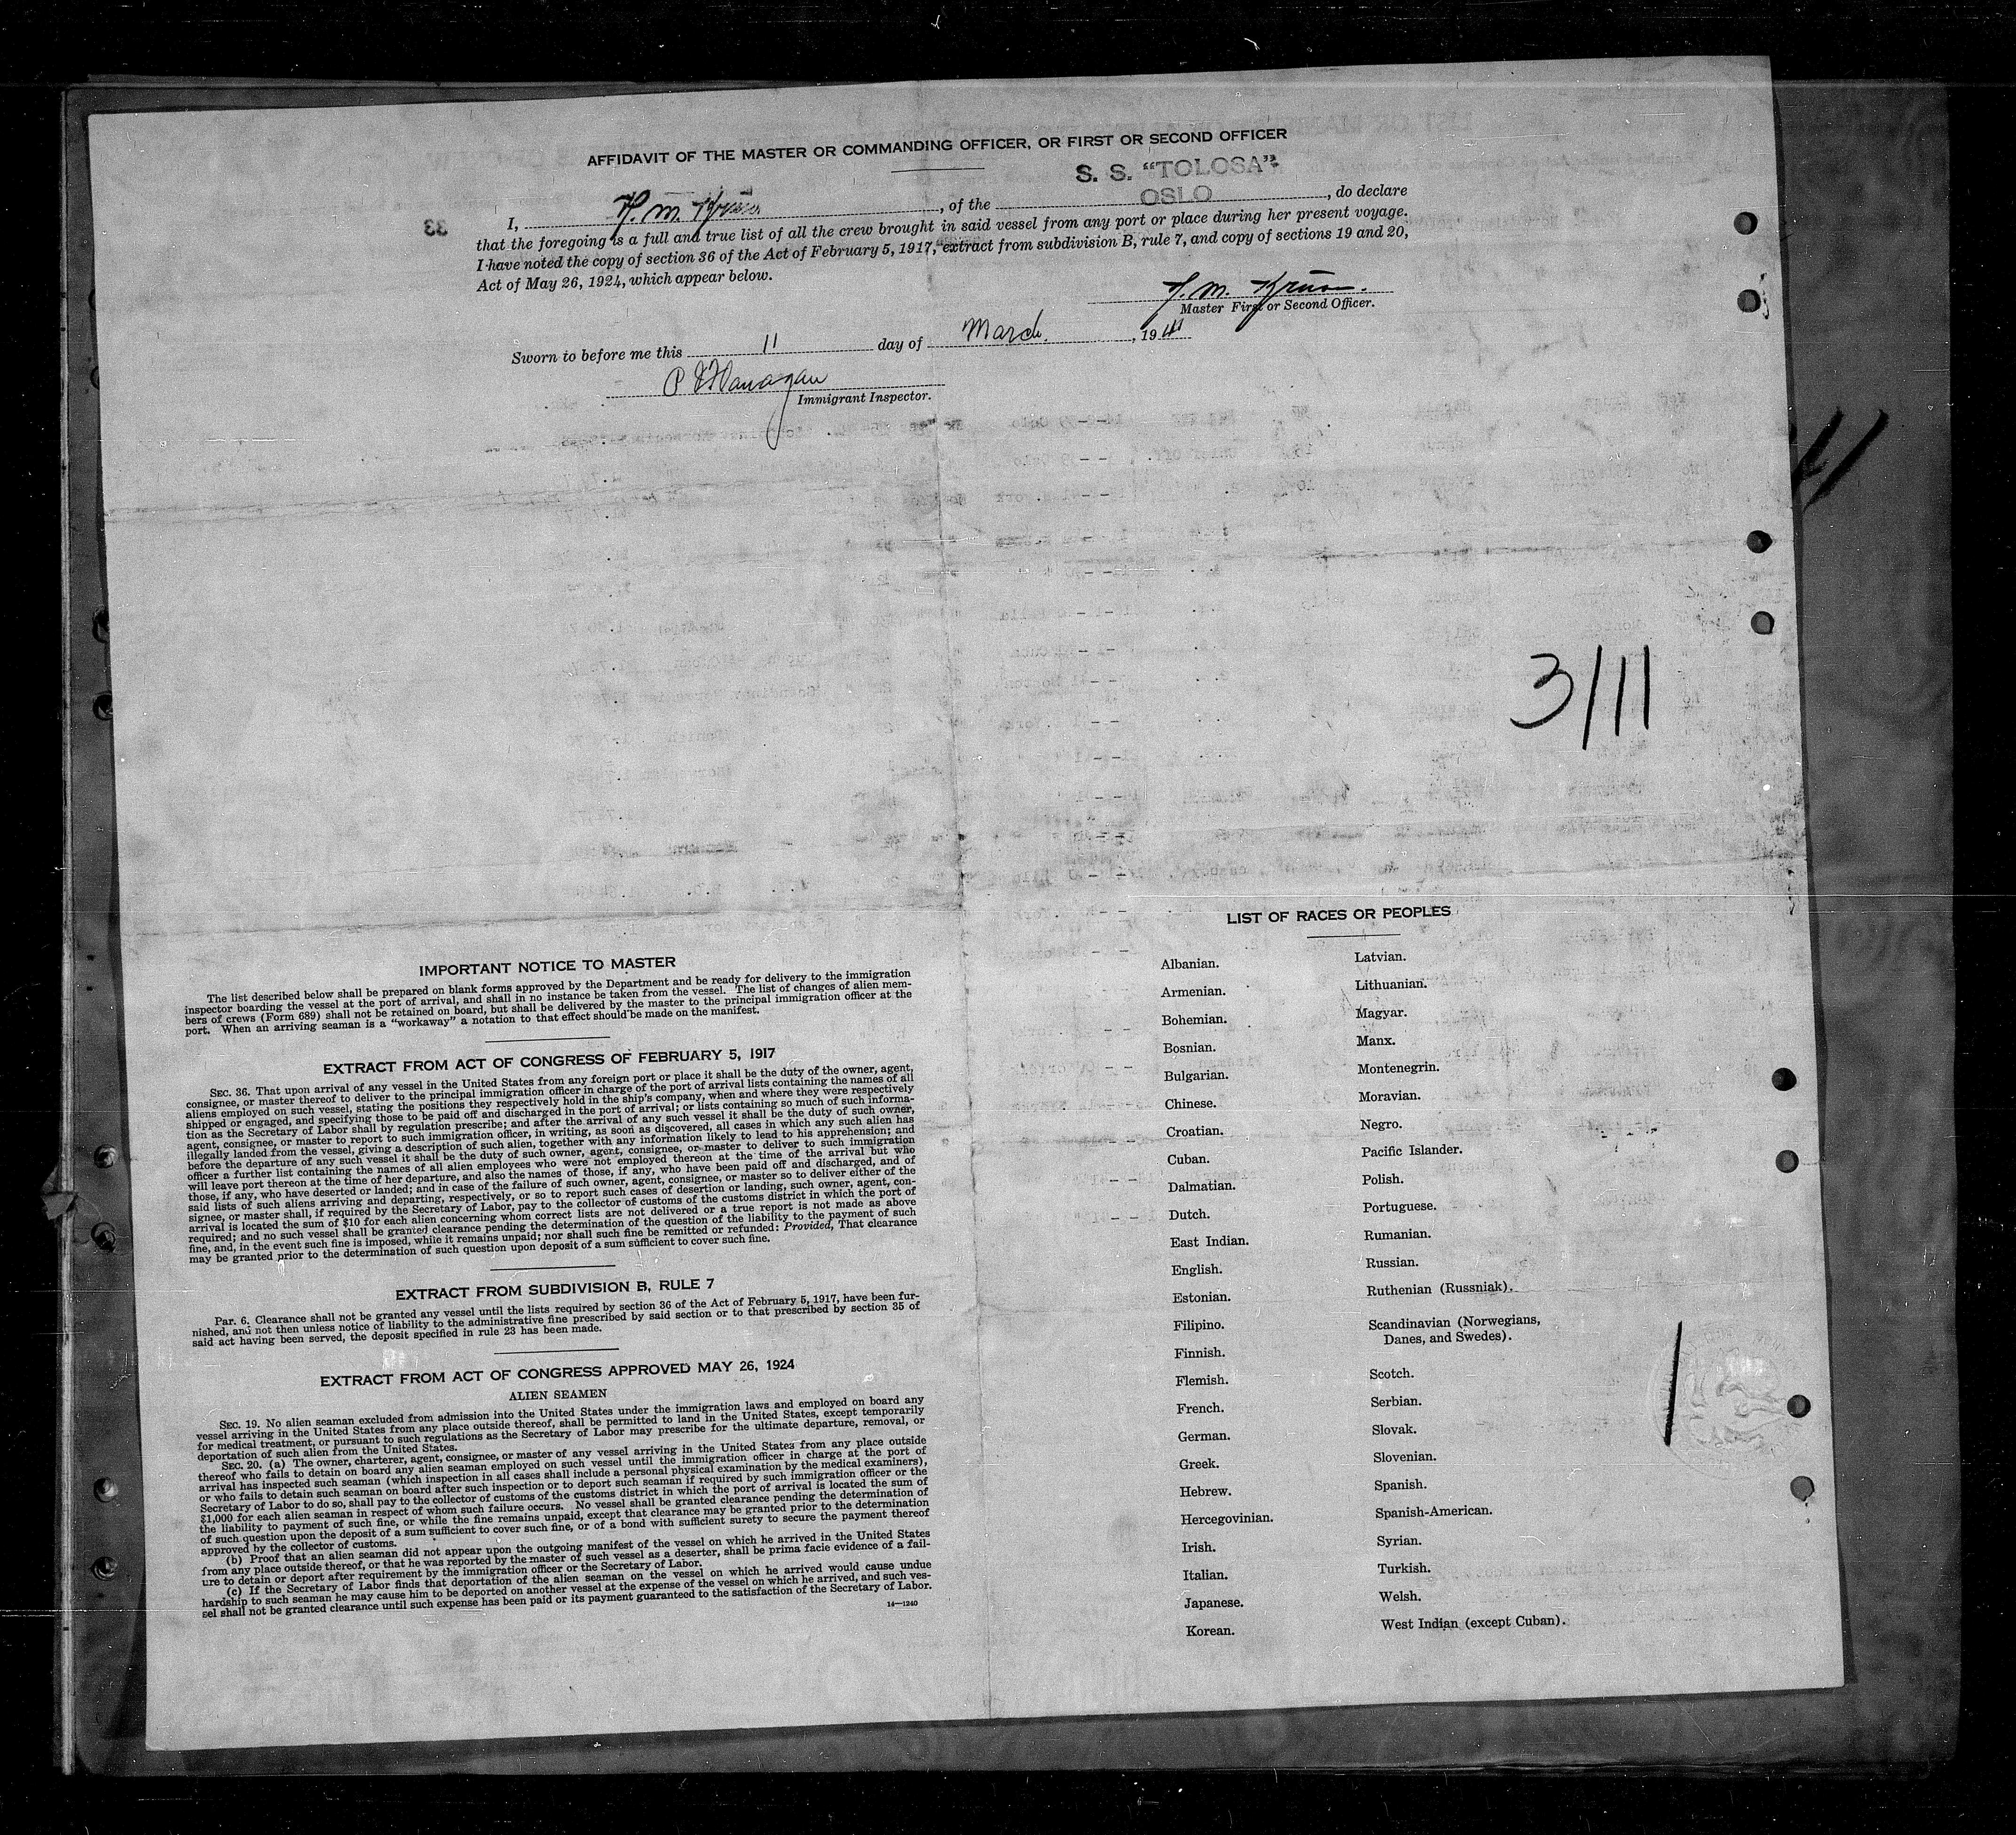 AFFIDAVIT OF THE MASTER OR COMMANDING OFFICER, OR FIRST OR SECOND OFFICER
S. S. "TOLOSA"
OSLO
I, H. M. , of the , do declare
that the foregoing is a full and true list of all the crew brought in said vessel from any port or place during her present voyage.
I have noted the copy of section 36 of the Act of February 5, 1917, extract from subdivision B, rule 7, and copy of sections 19 and 20,
Act of May 26, 1924, which appear below.
33
Master First or Second Officer.
Sworn to before me this 11 day of March, 1941
P Flanagan
Immigrant Inspector.
41
3/11
IMPORTANT NOTICE TO MASTER
The list described below shall be prepared on blank forms approved by the Department and be ready for delivery to the immigration
inspector boarding the vessel at the port of arrival, and shall in no instance be taken from the vessel. The list of changes of alien mem-
bers of crews (Form 689) shall not be retained on board, but shall be delivered by the master to the principal immigration officer at the
port. When an arriving seaman is a "workaway" a notation to that effect should be made on the manifest.
EXTRACT FROM ACT OF CONGRESS OF FEBRUARY 5, 1917
SEC. 36. That upon arrival of any vessel in the United States from any foreign port or place it shall be the duty of the owner, agent,
consignee, or master thereof to deliver to the principal immigration officer in charge of the port of arrival lists containing the names of all
aliens employed on such vessel, stating the positions they respectively hold in the ship's company, when and where they were respectively
shipped or engaged, and specifying those to be paid off and discharged in the port of arrival; or lists containing so much of such informa-
tion as the Secretary of Labor shall by regulation prescribe; and after the arrival of any such vessel it shall be the duty of such owner,
agent, consignee, or master to report to such immigration officer, in writing, as soon as discovered, all cases in which any such alien has
illegally landed from the vessel, giving a description of such alien, together with any information likely to lead to his apprehension; and
before the departure of any such vessel it shall be the duty of such owner, agent, consignee, or master to deliver to such immigration
officer a further list containing the names of all alien employees who were not employed thereon at the time of the arrival but who
will leave port thereon at the time of her departure, and also the names of those, if any, who have been paid off and discharged, and of
those, if any, who have deserted or landed; and in case of the failure of such owner, agent, consignee, or master so to deliver either of the
said lists of such aliens arriving and departing, respectively, or so to report such cases of desertion or landing, such owner, agent, con-
signee, or master shall, if required by the Secretary of Labor, pay to the collector of customs of the customs district in which the port of
arrival is located the sum of $10 for each alien concerning whom correct lists are not delivered or a true report is not made as above
required; and no such vessel shall be granted clearance pending the determination of the question of the liability to the payment of such
fine, and, in the event such fine is imposed, while it remains unpaid; nor shall such fine be remitted or refunded: Provided, That clearance
may be granted prior to the determination of such question upon deposit of a sum sufficient to cover such fine.
EXTRACT FROM SUBDIVISION B, RULE 7
Par. 6. Clearance shall not be granted any vessel until the lists required by section 36 of the Act of February 5, 1917, have been fur-
nished, and not then unless notice of liability to the administrative fine prescribed by said section or to that prescribed by section 35 of
said act having been served, the deposit specified in rule 23 has been made.
EXTRACT FROM ACT OF CONGRESS APPROVED MAY 26, 1924
ALIEN SEAMEN
SEC. 19. No alien seaman excluded from admission into the United States under the immigration laws and employed on board any
vessel arriving in the United States from any place outside thereof, shall be permitted to land in the United States, except temporarily
for medical treatment, or pursuant to such regulations as the Secretary of Labor may prescribe for the ultimate departure, removal, or
deportation of such alien from the United States.
SEC. 20. (a) The owner, charterer, agent, consignee, or master of any vessel arriving in the United States from any place outside
thereof who fails to detain on board any alien seaman employed on such vessel until the immigration officer in charge at the port of
arrival has inspected such seaman (which inspection in all cases shall include a personal physical examination by the medical examiners),
or who fails to detain such seaman on board after such inspection or to deport such seaman if required by such immigration officer or the
Secretary of Labor to do so, shall pay to the collector of customs of the customs district in which the port of arrival is located the sum of
$1,000 for each alien seaman in respect of whom such failure occurs. No vessel shall be granted clearance pending the determination of
the liability to payment of such fine, or while the fine remains unpaid, except that clearance may be granted prior to the determination
of such question upon the deposit of a sum sufficient to cover such fine, or of a bond with sufficient surety to secure the payment thereof
approved by the collector of customs.
(b) Proof that an alien seaman did not appear upon the outgoing manifest of the vessel on which he arrived in the United States
from any place outside thereof, or that he was reported by the master of such vessel as a deserter, shall be prima facie evidence of a fail-
ure to detain or deport after requirement by the immigration officer or the Secretary of Labor.
(c) If the Secretary of Labor finds that deportation of the alien seaman on the vessel on which he arrived would cause undue
hardship to such seaman he may cause him to be deported on another vessel at the expense of the vessel on which he arrived, and such ves-
sel shall not be granted clearance until such expense has been paid or its payment guaranteed to the satisfaction of the Secretary of Labor.
14—1240
LIST OF RACES OR PEOPLES
Albanian.
Armenian.
Bohemian.
Bosnian.
Bulgarian.
Chinese.
Croatian.
Cuban.
Dalmatian.
Dutch.
East Indian.
English.
Estonian.
Filipino.
Finnish.
Flemish.
French.
German.
Greek.
Hebrew.
Hercegovinian.
Irish.
Italian.
Japanese.
Korean.
Latvian.
Lithuanian.
Magyar.
Manx.
Montenegrin.
Moravian.
Negro.
Pacific Islander.
Polish.
Portuguese.
Rumanian.
Russian.
Ruthenian (Russniak).
Scandinavian (Norwegians,
Danes, and Swedes).
Scotch.
Serbian.
Slovak.
Slovenian.
Spanish.
Spanish-American.
Syrian.
Turkish.
Welsh.
West Indian (except Cuban).